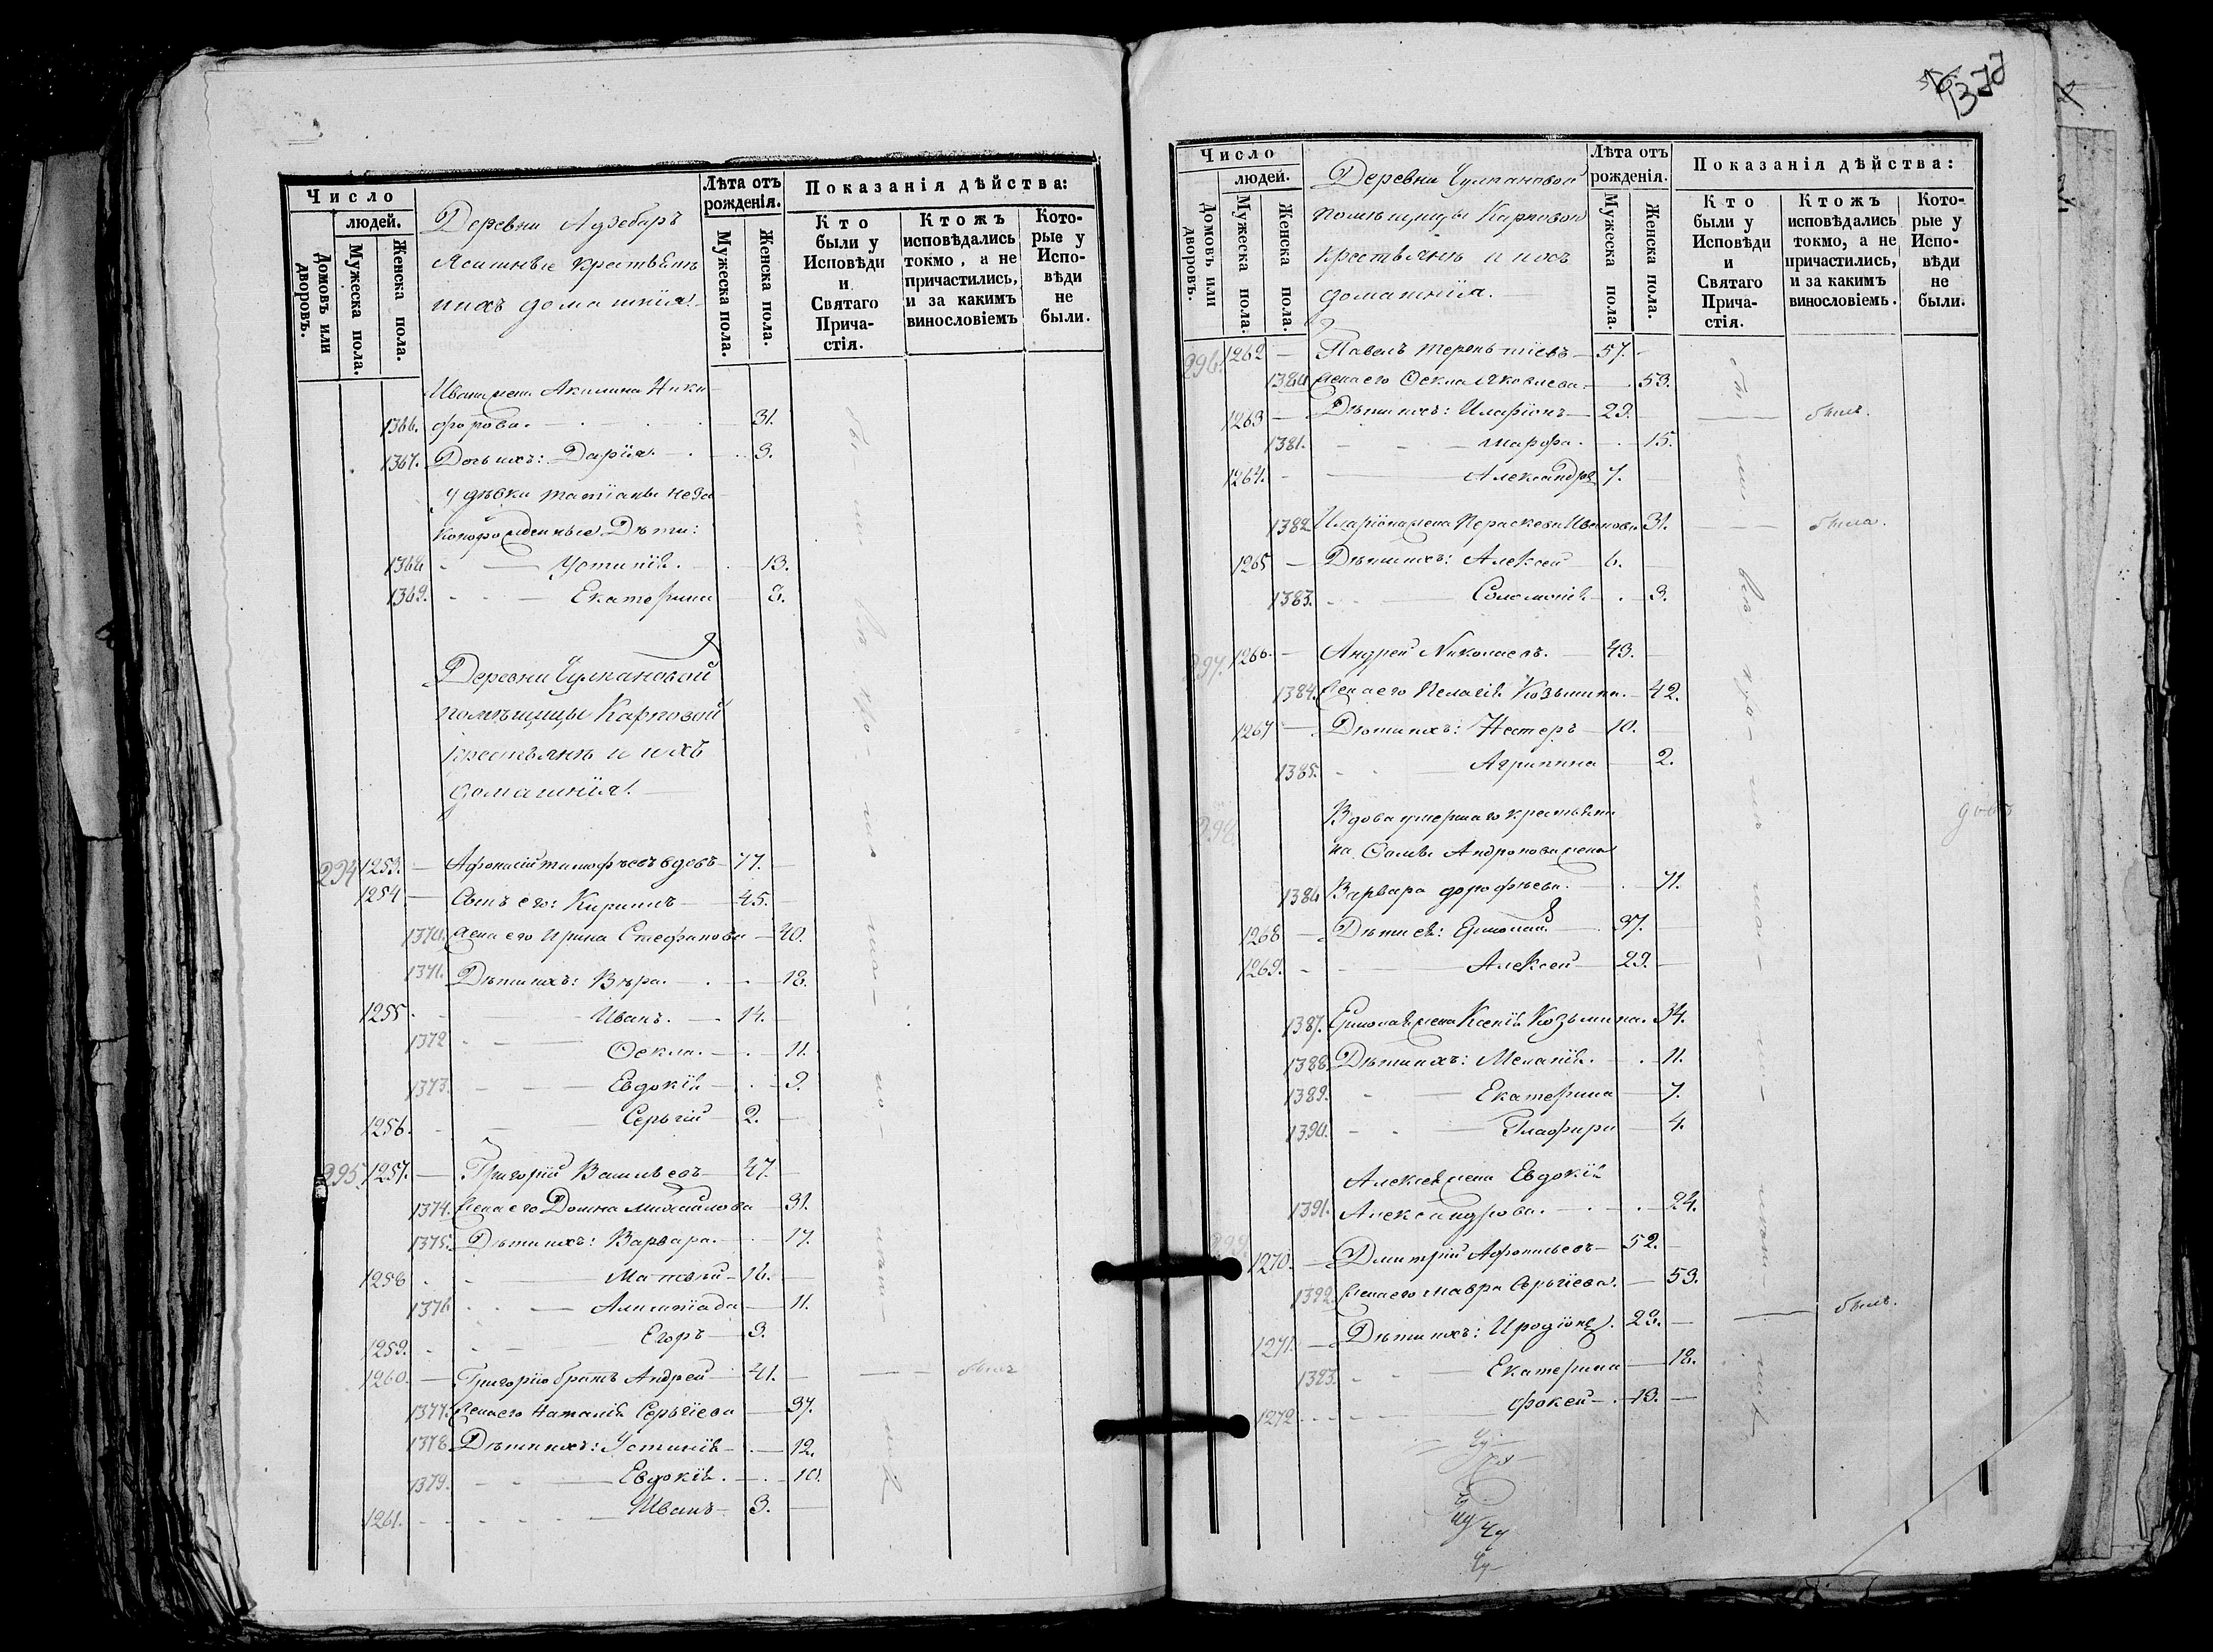 Число
людей.
Домовъ или дворовъ.
Мужеска пола.
Женска пола.
Деревни
крестьянъ
ихъ домашнія
Лѣта отъ рожденія.
Мужеска пола.
Женска пола.
Показанія дѣйства:
Кто были у Исповѣди и Святаго Прича- стія.
Ктожъ исповѣдались токмо, а не причастились, и за какимъ винословіемъ
Кото- рые у Испо- вѣди не были.
Ивана жена Акилина Ники-
1366. форова. 31.
1367. Дочь ихъ: Дарія. 3.
у дѣвки татіаны неза-
конорожденные Дѣти:
1368 Устинія. 13.
1369. Екатерина 8.
Деревни Чулпановой
помѣщицы Карповой
крестьянъ и ихъ
домашнія.
294 1253. Афонасій тимофѣевъ вдовъ 77.
1254 Сынъ его: Кирилъ 45.
1370. Жена его Ирина Стефанова 40.
1371. Дѣти ихъ: Вѣра. 18.
1255 Иванъ. 14.
1372 Ѳекла. 11.
1373. Евдокія 9.
1256. Сергій 2.
295 1257. Григорій Васильевъ 47.
1374. Жена его Домна Михайлова 31.
1375. Дѣти ихъ: Варвара. 17.
1258 Матвѣй 16.
1376 Алимпіада 11.
1259. Егоръ 3.
1260. Григорію братъ Андрей 41. былъ
1377. Жена его Наталія Сергіева 37.
1378. Дѣти ихъ: Устинія 12.
1379. Евдокія. 10.
1261. Иванъ 3.
1377
Число
людей.
Домовъ или дворовъ.
Мужеска пола.
Женска пола.
Деревни Чулпановой
помѣщицы Карповой
крестьянъ и ихъ
домашнія.
Лѣта отъ рожденія.
Мужеска пола.
Женска пола.
Показанія дѣйства:
Кто были у Исповѣди и Святаго Прича- стія.
Ктожъ исповѣдались токмо, а не причастились, и за какимъ винословіемъ.
Кото- рые у Испо- вѣди не были.
296. 1262 Павелъ терентіевъ 57.
1380 Жена его Ѳекла Яковлева 53.
1263 Дѣти ихъ: Иларіонъ 29. былъ.
1381. Марфа. 15.
1264. Александръ 7.
1382 Иларіона жена Параскева Иванова 31. была.
1265 Дѣти ихъ: Алексей 6.
1383. Соломонія 3.
297. 1266. Андрей Николаевъ. 43.
1384. Жена его Пелагія Козьмина. 42.
1267 Дѣти ихъ: Нестеръ 10.
1385. Агрипина 2.
298. Вдова умершаго крестьяни-
на Ѳомы Андронова жена
1386 Варвара дорофѣева. 71.
1268 Дѣти ея: Ермолай 37.
1269. Алексей 29.
1387. Ермолая жена Ксенія Козьмина. 34.
1388. Дѣти ихъ: Меланія. 11.
1389. Екатерина 7.
1390. Глафира 4.
Алексея жена Евдокія
1391. Александрова. 24.
299 1270. Дмитрій Афонасьевъ 52.
1392. Жена его мавра Сергіева. 53.
1271. Дѣти ихъ: Иродіонъ. 23. былъ.
1393. Екатерина 18.
1272 фокей 13.